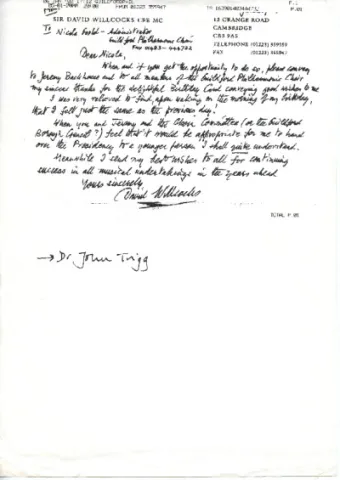 SIR DAVID WILLCOCKS CBE MC
13 GRANGE ROAD
CAMBRIDGE
CB3 9AS
TELEPHONE (01223) 359559
FAX (01223)
To Nicola - Administrator
Guildford Philharmonic Choir
Fax 01483- 444732
Dear Nicola,
When and if you get the opportunity to do so, please convey
to Jeremy Backhouse and to all members of the Guildford Philharmonic Choir
my sincere thanks for the delightful Birthday Card conveying good wishes to me
I was very relieved to find, upon waking on the morning of my birthday,
that I felt just the same as the previous day!
When you and Jeremy and the Choir Committee (or the Guildford
Borough Council?) feel that it would be appropriate for me to hand
over the Presidency to a younger person I shall quite understand.
Meanwhile I send my best wishes to all for continuing
success in all musical undertakings in the years ahead
Yours sincerely,
David Willcocks
TOTAL P.01
→ Dr. John Trigg